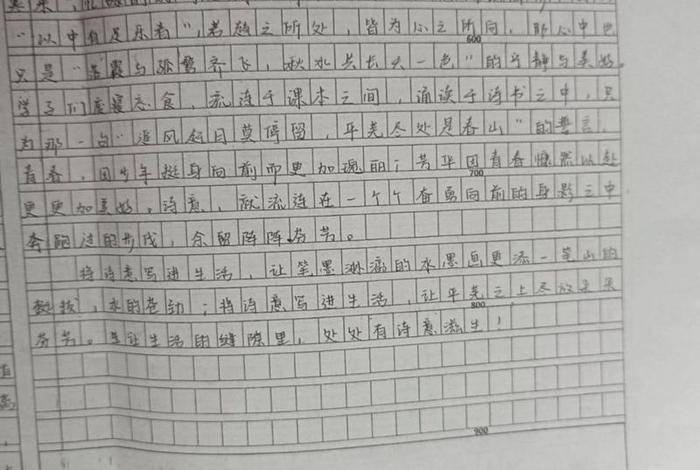 "以中有足乐者"，若趣之所处，皆为心之所向，那心中也
600
只是"落霞与孤鹜齐飞，秋水共长天一色"的宁静与美好。
学子们废寝忘食，流连于课本之间，诵读于诗书之中，只
为那一句"追风赶月莫停留，平芜尽处是春山"的誓言。
青春，因少年挺身向前而更加瑰丽；芳华因青春
700
更更加美好。诗意，就流连在一个个奋勇向前的身影之中
奔跑过的步伐，余留阵阵芬芳。
将诗意写进生活，让笔墨淋漓的水墨画更添一笔山的
，水的苍劲；将诗意写进生活，让平芜之上尽放
800
芬芳。且让生活的缝隙里，处处有诗意滋生！
900